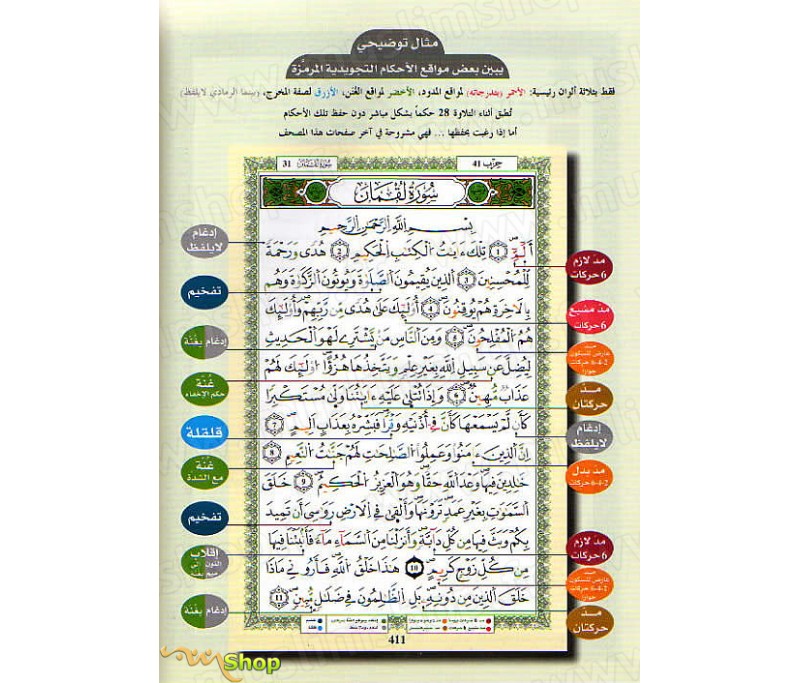 مثال توضيحي
يبين بعض مواقع الأحكام التجويدية المرمّزة
فقط بثلاثة ألوان رئيسية: الأحمر (بتدرجاته) لمواقع المدود، الأخضر لمواقع الغُنن، الأزرق لصفة المخرج، (بينما الرمادي لايلفظ)
تُطبق أثناء التلاوة 28 حكماً بشكل مباشر دون حفظ تلك الأحكام
أما إذا رغبت بحفظها ... فهي مشروحة في آخر صفحات هذا المصحف
حزب 41
سورة لقمان 31
سورة لقمان
بسم الله الرحمن الرحيم
الٓمٓ ١ تلك ءايت الكتب الحكيم ٢ هدى ورحمة
للمحسنين ٣ الذين يقيمون الصلوة ويوتون الزكوة وهم
بالاخرة هم يوقنون ٤ أوليك على هدى من ربهم وأوليك
هم المفلحون ٥ ومن الناس من يشتري لهو الحديث
ليضل عن سبيل الله بغير علم ويتخذها هزؤا اوليك لهم
عذاب مهين ٦ وإذا تتلى عليه ءايتنا ولى مستكبرا
كأن لم يسمعها كأن في أذنيه وقرا فبشره بعذاب اليم ٧
إن الذين ءامنوا وعملوا الصلحت لهم جنت النعيم ٨
خلدين فيها وعد الله حقا وهو العزيز الحكيم ٩ خلق
السموت بغير عمد ترونها وألقى في الارض روسي أن تميد
بكم وبث فيها من كل دابة وأنزلنا من السماء ماء فأنبتنا فيها
من كل زوج كريم ١٠ هذا خلق الله فأروني ماذا
خلق الذين من دونه بل الظلمون في ضلل مبين ١١
411
إدغام
لايلفظ
تفخيم
إدغام بغُنة
غُنّة
حكم الإخفاء
قلقلة
غُنّة
مع الشدة
تفخيم
إقلاب
إدغام بغُنة
مد لازم
6 حركات
مد مشبع
6 حركات
مد
عارض للسكون
2-4-6 حركات
جوازاً
مد
حركتان
إدغام
لايلفظ
مد بدل
2-4-6 حركات
مد لازم
6 حركات
مد
عارض للسكون
2-4-6 حركات
جوازاً
مد
حركتان
Shop